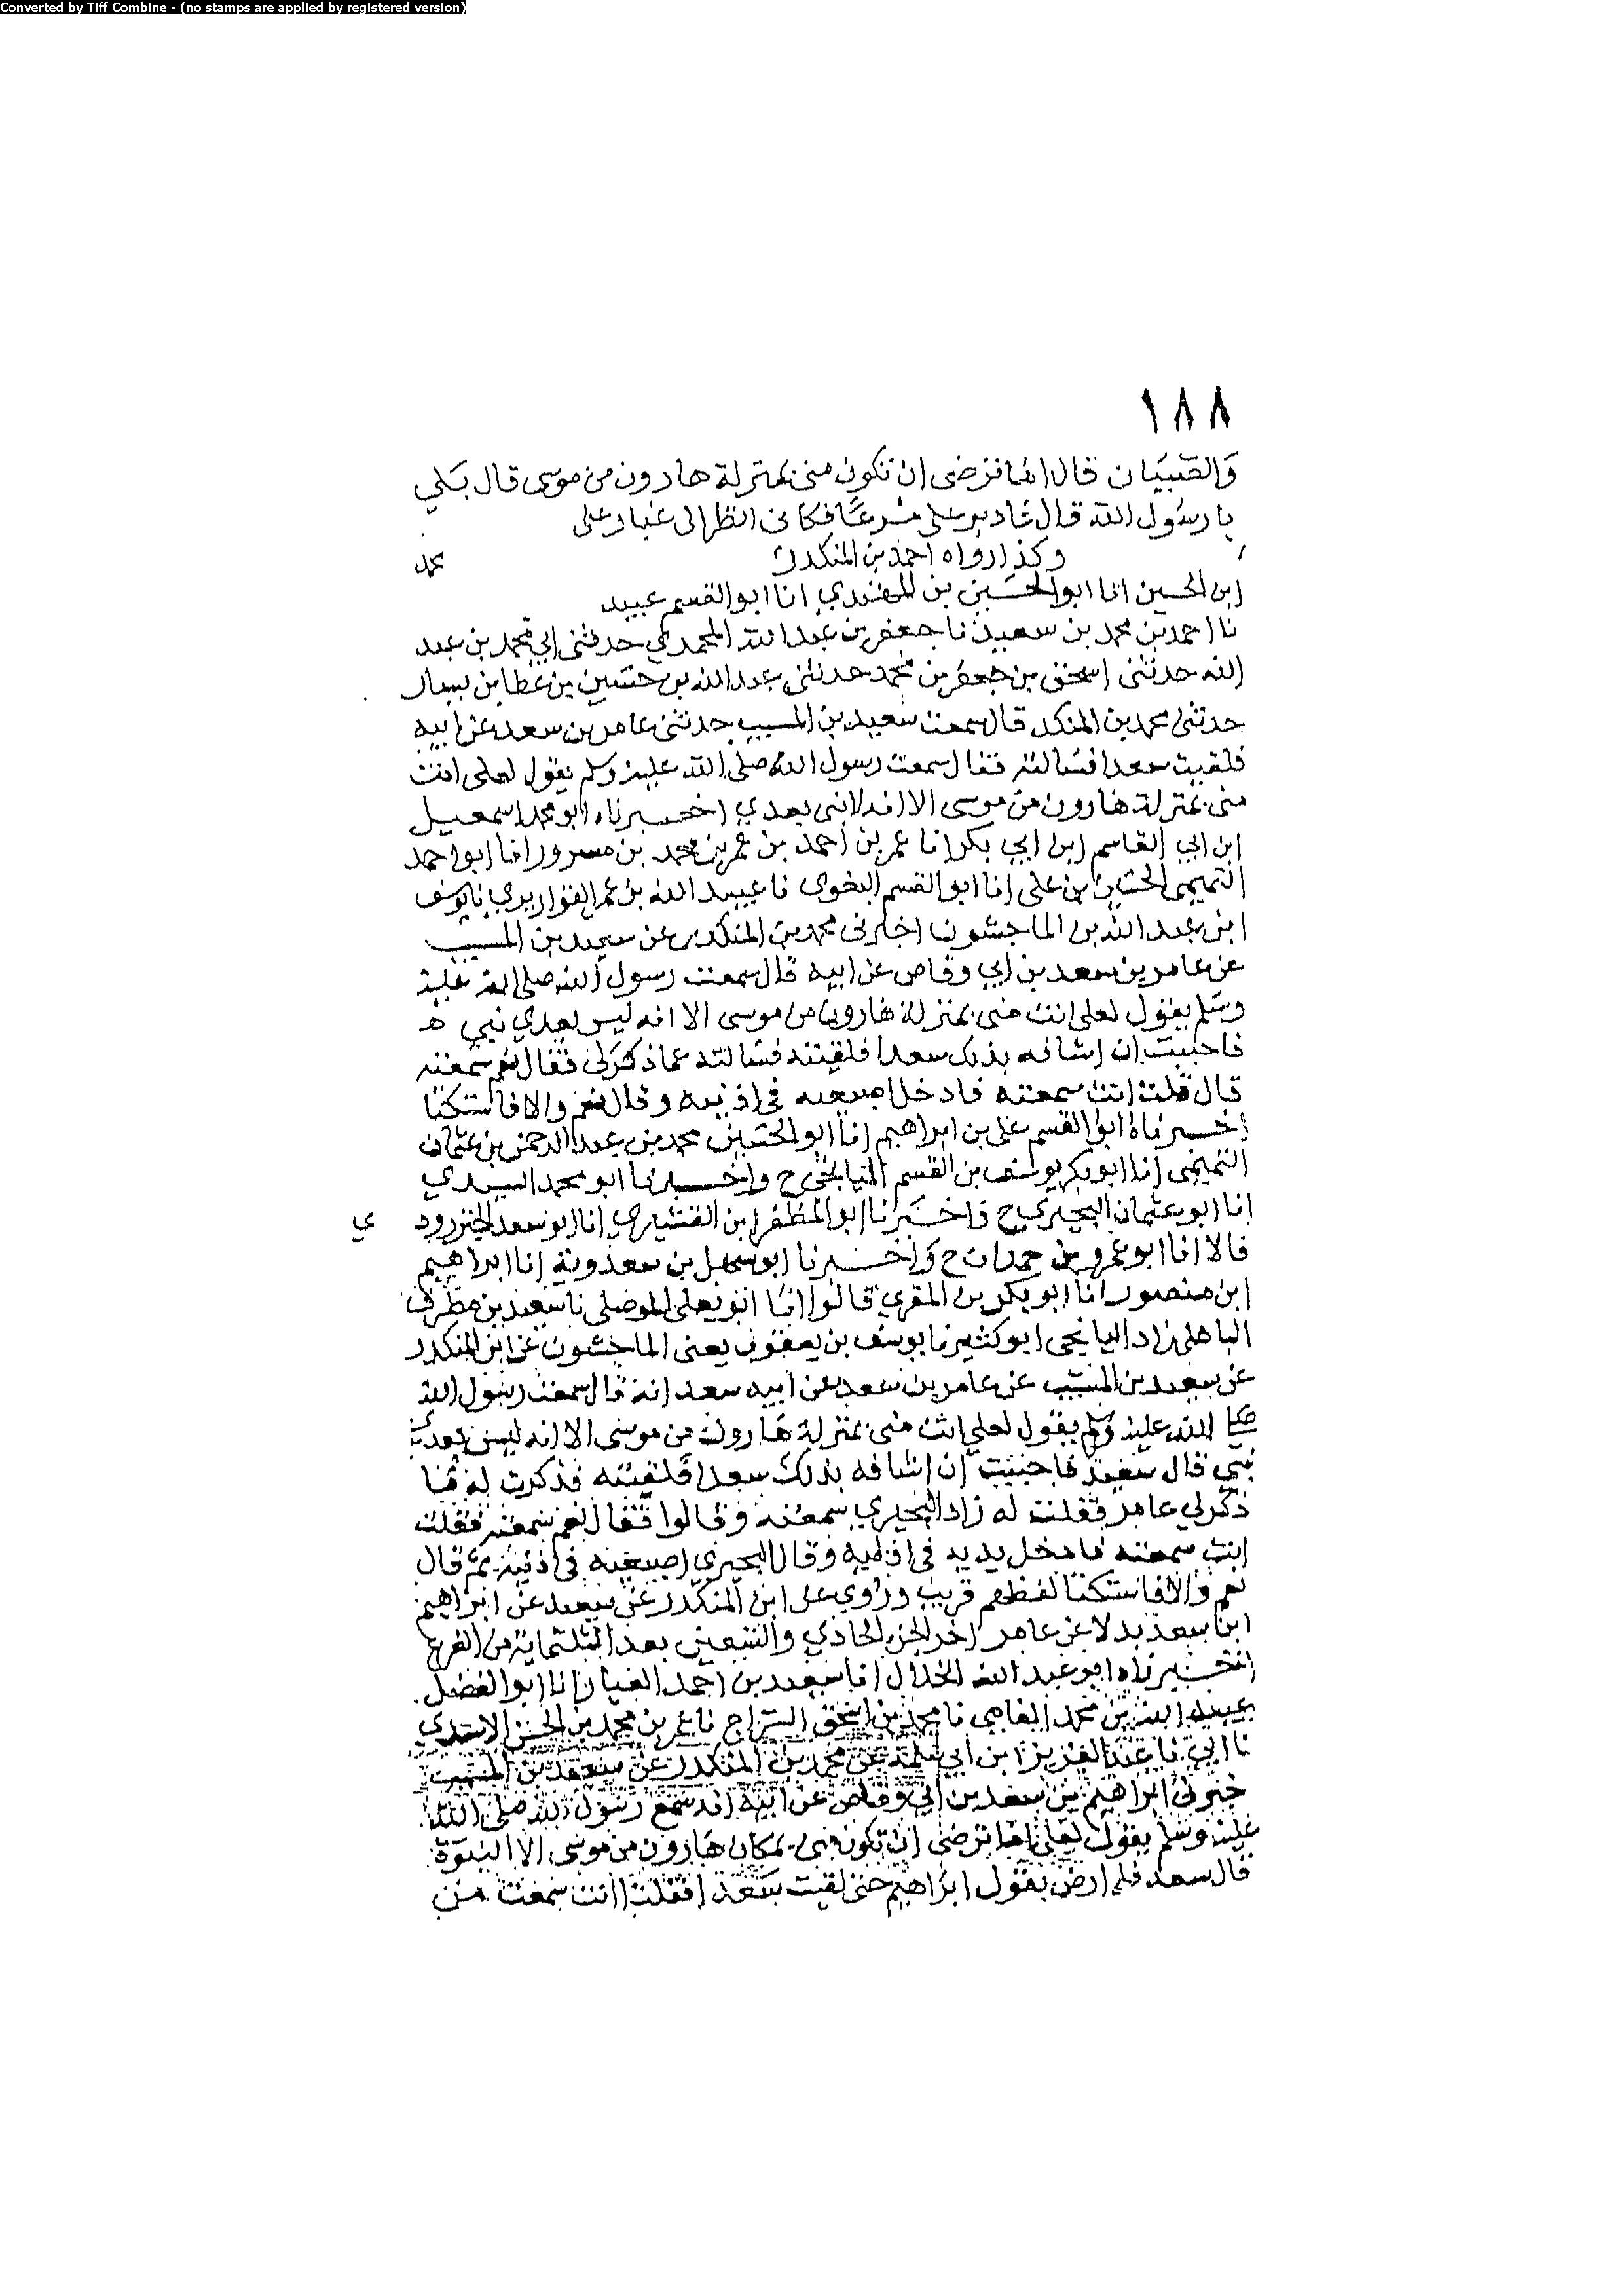 Converted by Tiff Combine - (no stamps are applied by registered version)
١٨٨
والصبيان قال اما ترضى ان تكون منى بمنزلة هارون من موسى قال بلى
يا رسول الله قال فادبر على مسرعا فكانى انظر الى غبار على
وكذا رواه احمد بن المنكدر
محمد
ابن الحسين انا ابو الحسين بن المهتدي انا ابو القسم عبيد
نا احمد بن محمد بن سعيد نا جعفر بن عبد الله المحمدي حدثنى ابي محمد بن عبد
الله حدثنى اسحق بن جعفر بن محمد حدثنى عبد الله بن حسين بن عطا بن يسار
حدثنى محمد بن المنكدر قال سمعت سعيد بن المسيب حدثنى عامر بن سعد عن ابيه
فلقيت سعدا فسالته فقال سمعت رسول الله صلى الله عليه وسلم يقول لعلى انت
منى بمنزلة هارون من موسى الا انه لا نبى بعدي اخبرناه ابو محمد اسمعيل
ابن ابي القاسم ابن ابي بكر انا عمر بن احمد بن عمر بن محمد بن مسرور انا ابو احمد
التميمى الحسين بن على انا ابو القسم البغوى نا عبيد الله بن عمر القواريري نا يوسف
ابن عبد الله بن الماجشون اخبرنى محمد بن المنكدر عن سعيد بن المسيب
عن عامر بن سعد بن ابي وقاص عن ابيه قال سمعت رسول الله صلى الله عليه
وسلم يقول لعلى انت منى بمنزلة هارون من موسى الا انه ليس بعدي نبي ه
فاحببت ان اشافه بذلك سعدا فلقيته فسالته عما ذكر لى فقال نعم سمعته
قال قلت انت سمعته فادخل اصبعيه في اذنيه وقال نعم والا فاستكتا
اخبرناه ابو القسم على بن ابراهيم انا ابو الحسين محمد بن عبد الرحمن بن عثمان
التميمى انا ابو بكر يوسف بن القسم الميانجى ح واخبرنا ابو محمد السيدي
انا ابو عثمان البحيري ح واخبرنا ابو المظفر ابن القشيري انا ابو سعد الجنزرود
ي
قالا انا ابو عمرو بن حمدان ح واخبرنا ابو سهل بن سعدويه انا ابراهيم
ابن منصور انا ابو بكر بن المقري قالوا انا ابو يعلى الموصلى نا سعيد بن مطرف
الباهلى زاد الميانجى ابو كثير نا يوسف بن يعقوب يعنى الماجشون عن ابن المنكدر
عن سعيد بن المسيب عن عامر بن سعد عن ابيه سعد انه قال سمعت رسول الله
صلى الله عليه وسلم يقول لعلي انت منى بمنزلة هارون من موسى الا انه ليس بعدي
نبي قال سعيد فاحببت ان اشافه بذلك سعدا فلقيته فذكرت له ما
ذكر لي عامر فقلت له زاد البحيري سمعته وقالوا فقال نعم سمعته فقلت
انت سمعته فادخل يديه في اذنيه وقال البحيري اصبعيه في اذنيه ثم قال
نعم والا فاستكتا لفظهم قريب وروي على ابن المنكدر عن سعيد عن ابراهيم
ابن سعد بدلا عن عامر اخر الجزء الحادي والتسعين بعد الثلثماية من الفرع
اخبرناه ابو عبد الله الخلال انا سعيد بن احمد العيار انا ابو الفضل
عبيد الله بن محمد الفامي نا محمد بن اسحق السراج نا عمر بن محمد بن الحسن الاسدي
نا ابي نا عبد العزيز ابن ابي سلمة عن محمد بن المنكدر عن سعيد بن المسيب
خبرنى ابراهيم بن سعد بن ابي وقاص عن ابيه انه سمع رسول الله صلى الله
عليه وسلم يقول لعلى اما ترضى ان تكون منى بمكان هارون من موسى الا النبوة
قال سعد فلم ارض بقول ابراهيم حتى لقيت سعدا فقلت اانت سمعت من